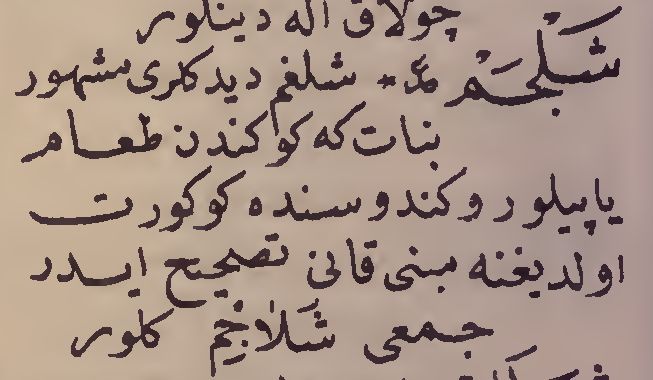 چولاق اله دینلور
شَلْجَمْ مد * شلغم دیدکلری مشهور
بنات که کوکندن طعام
یاپیلور و کندوسنده کوکورت
اولدیغنه مبنی قانی تصحیح ایدر
جمعی شَلَاجِم کلور